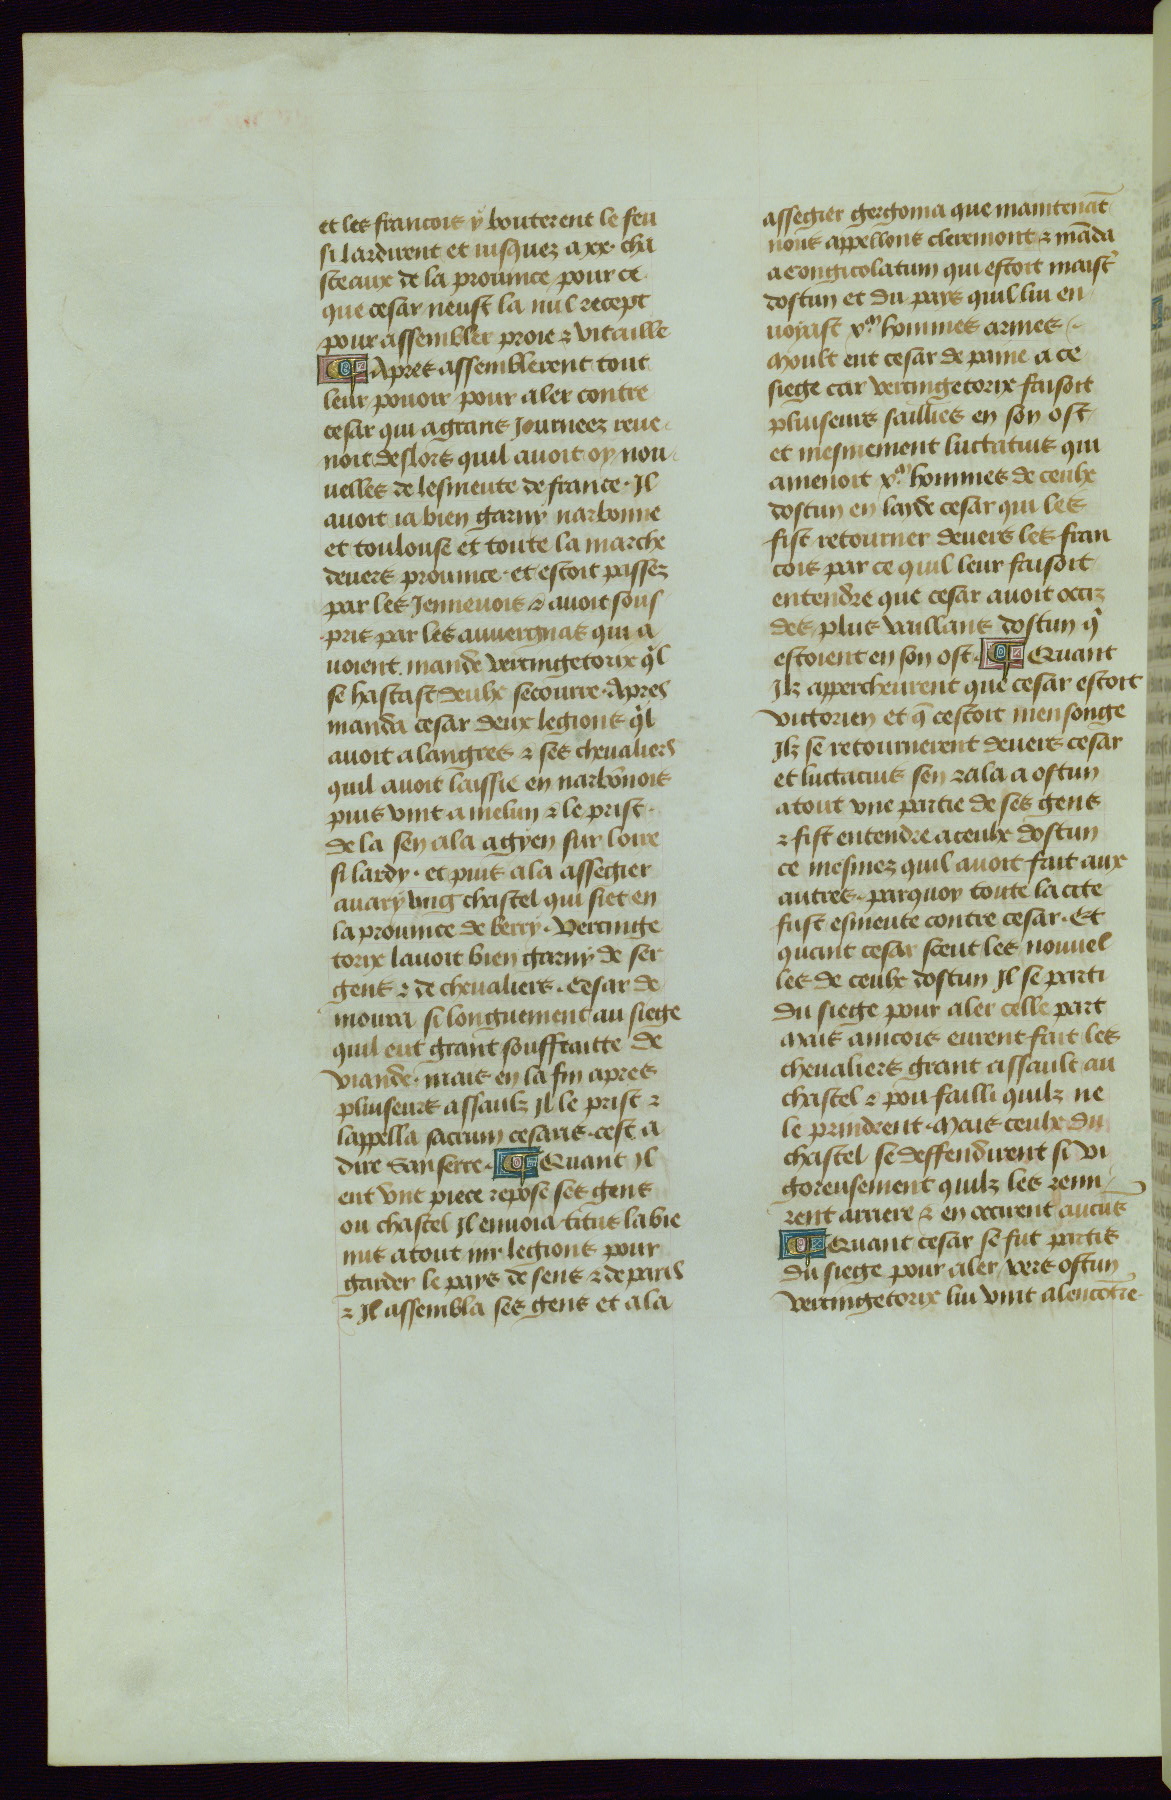 et les francois y bouterent le feu
si lardirent et iusquez a xx. cha
steaux de la prouince pour ce
que cesar neust la nul recept
pour assembler proie ⁊ vitaille
¶ Apres assemblerent tout
leur pouoir pour aler contre
cesar qui a grans Journeez reue
noit deslors quil auoit oy nou
uelles de lesmeute de france. Il
auoit ia bien garny narbonne
et toulouse et toute la marche
deuers prouince. et estoit passez
par les Jennenois ⁊ auoit sous
pris par les auuergnas qui a
uoient mande vercingetorix q̓l
se hastast deulx secourre. Apres
manda cesar deux legions q̓l
auoit a langres ⁊ ses cheualiers
quil auoit laissie en narbōnois
puis vint a melun ⁊ le prist.
de la sen ala a gyen sur loire
si lardy. et puis ala assegier
auary vng chastel qui siet en
la prouince de berry. Vercinge
torix lauoit bien garny de ser
gens ⁊ de cheualiers. Cesar de
moura si longuement au siege
quil eut grant souffraitte de
viande. mais en la fin apres
pluiseurs assaulz Jl le prist ⁊
lappella sacrum cesaris. cest a
dire Sanserre. ¶ Quant Jl
eut vne piece repose ses gens
ou chastel Jl enuoia titus labie
nus atout iiij legions pour
garder le pays de sens ⁊ de paris
⁊ Jl assembla ses gens et ala
assegier gergoma que maintenāt
nous appellons cleremont ⁊ māda
a Congicolatum qui estoit maist̓
dostun et du pays quil lui en
uoyast x.ᵐ hommes armes.
Moult eut cesar de paine a ce
siege car vercingetorix faisoit
pluiseurs saillies en son ost
et mesmement luctatius qui
amenoit x.ᵐ hommes de ceulx
dostun en layde cesar qui les
fist retourner deuers les fran
cois par ce quil leur faisoit
entendre que cesar auoit occiz
des plus vaillans dostun q̓
estoient en son ost. ¶ Quant
Jlz appercheurent que cesar estoit
victorien et q̄ cestoit mensonge
Jlz se retournerent deuers cesar
et luctatius sen rala a ostun
atout vne partie de ses gens
⁊ fist entendre a ceulx dostun
ce mesmez quil auoit fait aux
autres. parquoy toute la cite
fust esmeute contre cesar. Et
quant cesar sceut les nouuel
les de ceulx dostun Jl se parti
du siege pour aler celle part
Mais aincois eurent fait les
cheualiers grant assault au
chastel ⁊ pou failli quilz ne
le prindrent. Mais ceulx du
chastel se deffendirent si vi
goreusement quilz les remi
rent arriere ⁊ en occirent aucūs
¶ Quant cesar se fut partis
du siege pour aler vers ostun
vercingetorix lui vint alencōtre.